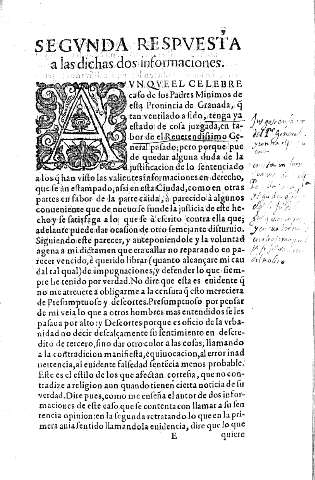 SEGVNDA RESPVESTA
a las dichas dos informaciones.
AVNQVE EL CELEBRE
caso de los Padres Minimos de
esta Prouincia de Granada, q̃
tan ventilado a sido, tenga ya
estado: de cosa juzgada, en fa-
bor de el Reuerendissimo Ge
neral pasado; pero porque pue
de quedar alguna duda de la
justificacion de lo sentenciado
a los q̃ han visto las valientes informaciones en derecho,
que se án estampado, asi en esta Ciudad, como en otras
partes en fabor de la parte caida, à parecido á algunos
conueniente que de nueuo se funde la justicia de este he-
cho y se satisfaga a lo que se à escrito contra ella que;
adelante puede dar ocasion de otro semejante disturuio.
Siguiendo este parecer, y anteponiendole y la voluntad
agena a mi dictamen que era callar no reparando en pa-
recer vencido, è querido librar (quanto alcançare mi cau
dal tal qual) de impugnaciones, y defender lo que siem-
pre he tenido por verdad. No dire que esta es euidente q̃
no me atreuere a obligarme a la censura q̃ esto mereciera
de Presumptuoso y descortes. Presumptuoso por pensar
de mi veia lo que a otros hombres mas entendidos se les
pasaua por alto: y Descortes porque es oficio de la vrba-
nidad no decir descalçamente su sentimiento en descre-
dito de tercero, sino dar otro color a las cosas, llamando
a la contradicion manifiesta, equiuocacion, al error inad
uertencia, ai euidente falsedad sentècia menos probable.
Este es el estilo de los que afectan cortesia, que no con-
tradize a religion aun quando tienen cierta noticia de su
verdad. Dire pues, como me enseña el autor de dos in-
formaciones de este caso que se contenta con llamar a su sen
tencia opinion: en la segunda retratando lo que en la pri-
mera auia sentido llamandola euidencia, dire que lo que
E quiere